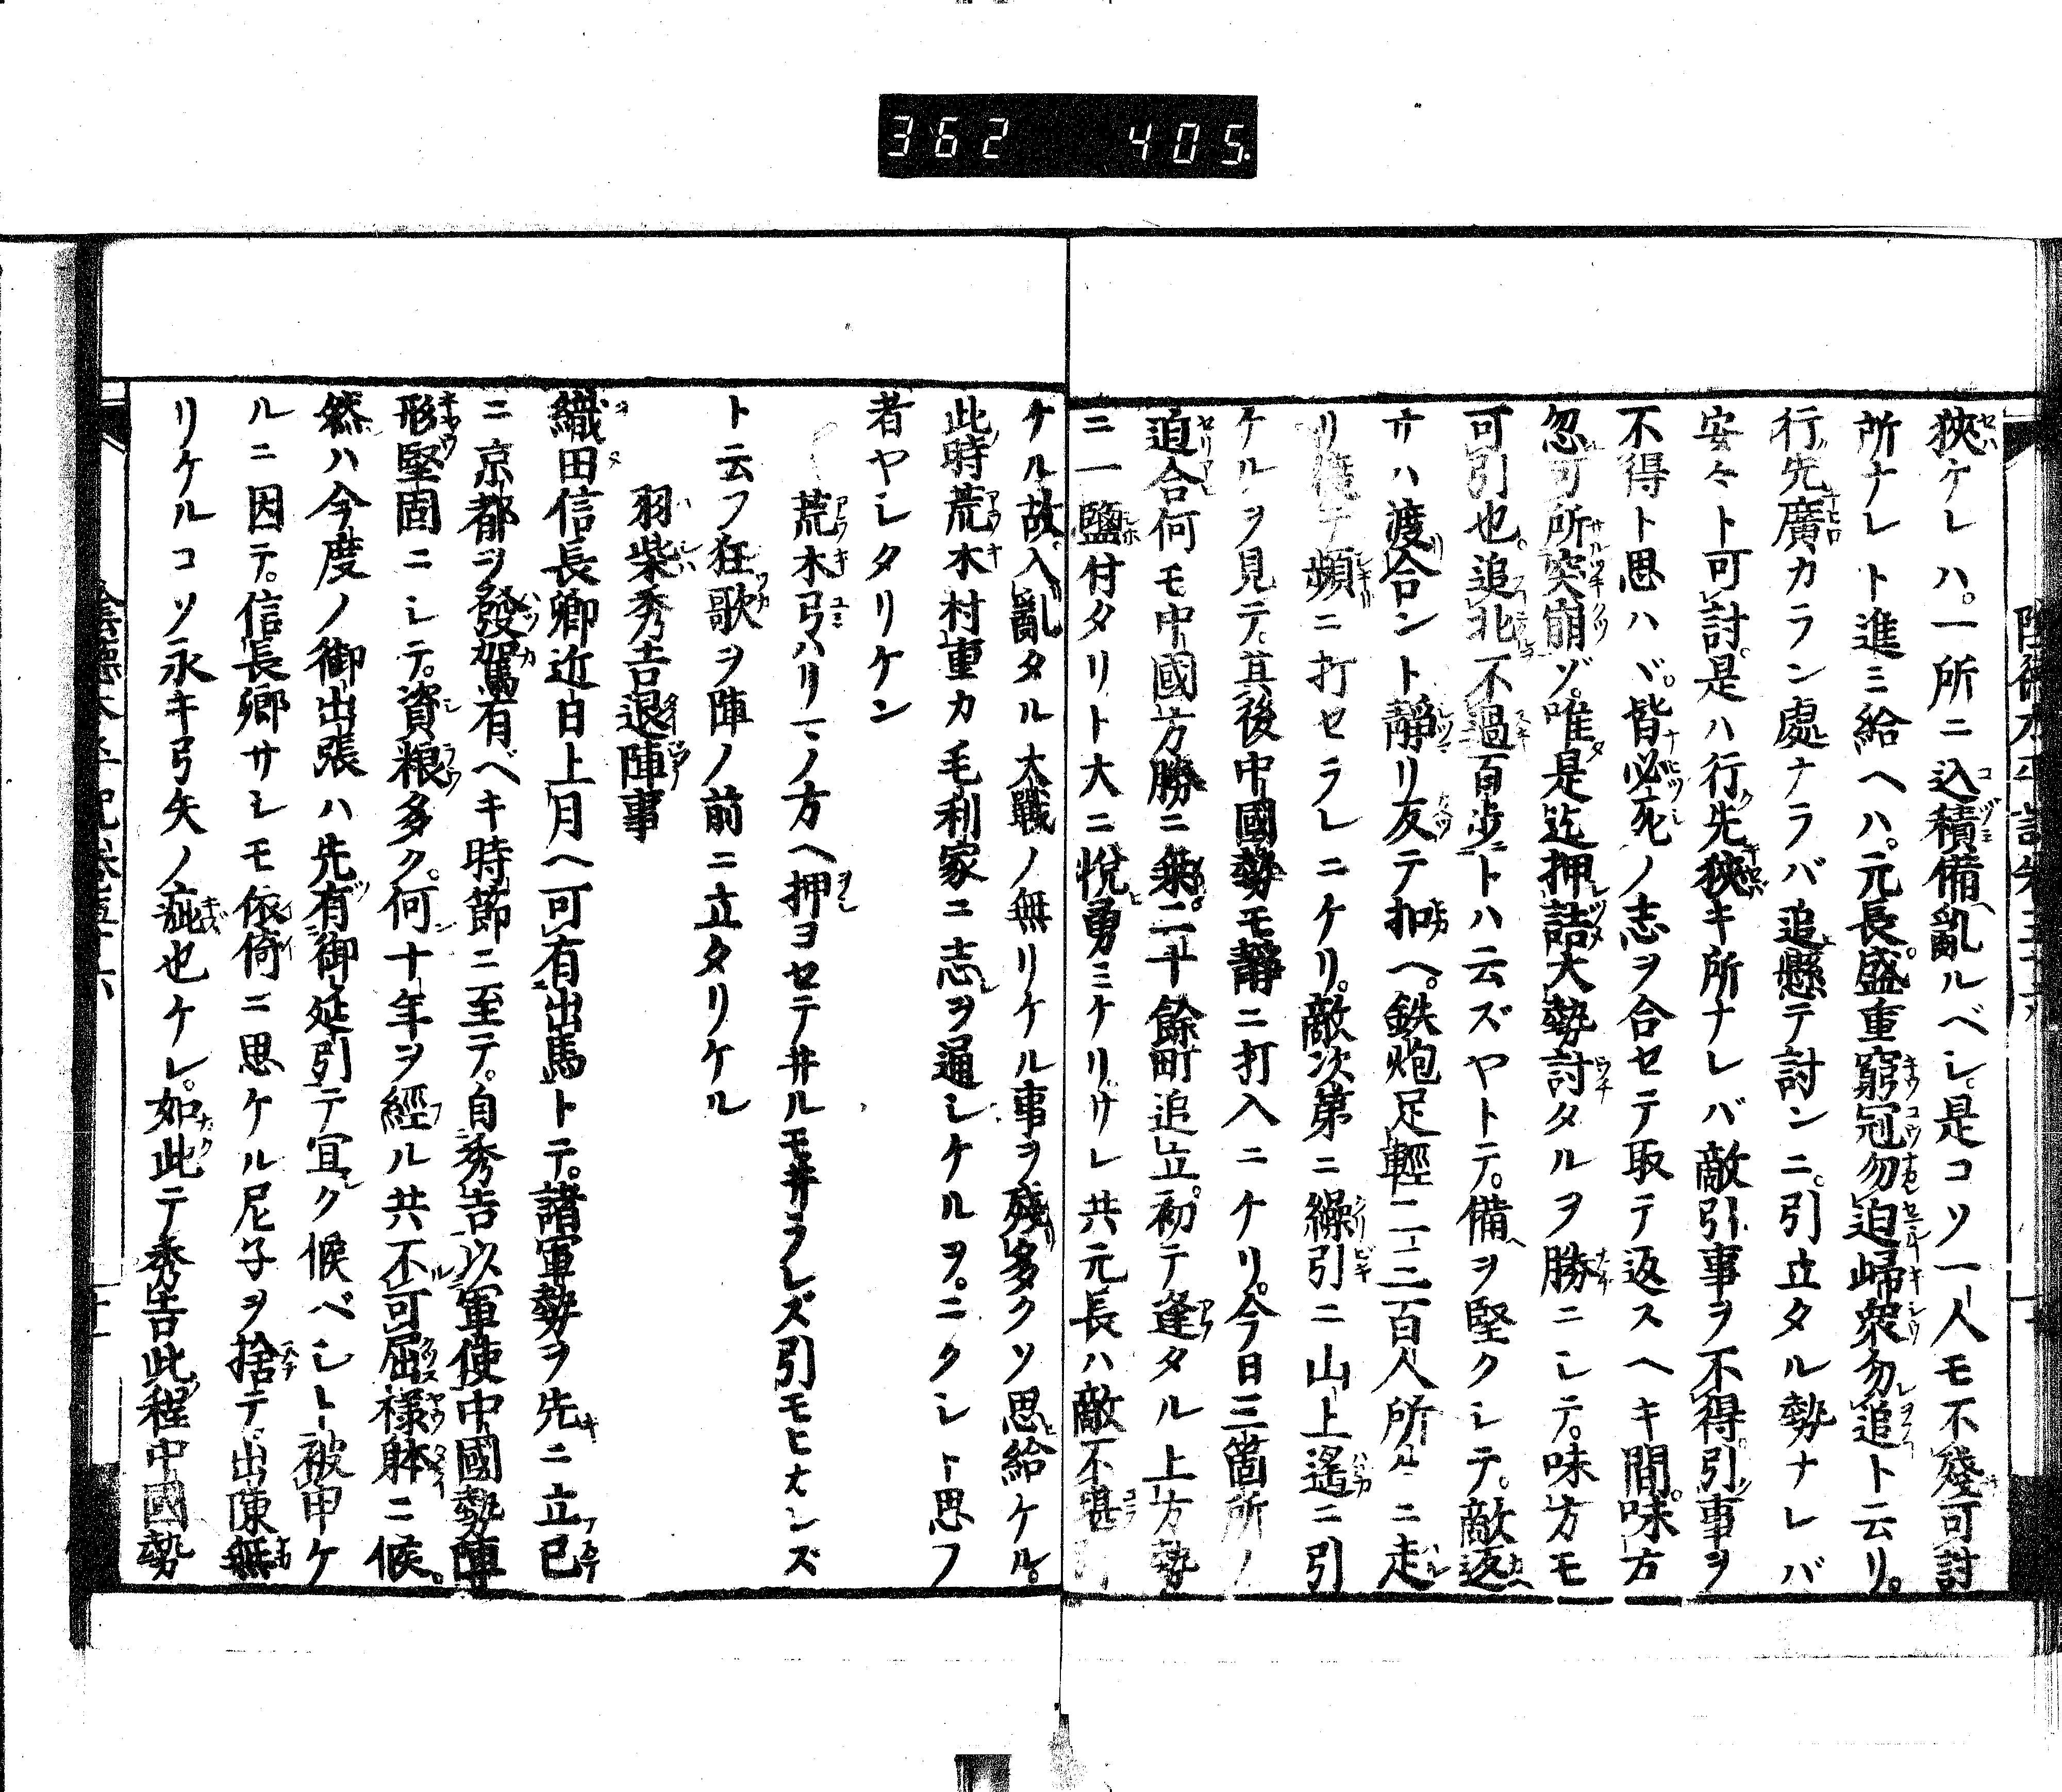 362 405.
狹ケレハ。一所ニ込積備亂ルベシ。是コソ一人モ不殘可討
所ナレト進ミ給ヘハ。元長。盛重窮冦勿迫歸衆勿追ト云リ。
行先廣カラン處ナラバ追懸テ討ンニ。引立タル勢ナレバ
安々ト可討。是ハ行先狹キ所ナレバ敵引事ヲ不得引事ヲ
不得ト思ハヾ。皆必死ノ志ヲ合セテ取テ返スヘキ間。味方
忽可所突崩ゾ。唯是迄押詰大勢討タルヲ勝ニシテ。味方モ
可引也。追北不過百歩トハ云ズヤトテ。備ヲ堅クシテ。敵返
サハ渡合ント靜リ反テ扣ヘ。鉄炮足輕二三百人所々ニ走
リ 頻ニ打セラレニケリ。敵次第ニ繰引ニ山上遙ニ引
ケルヲ見テ。其後中國勢モ靜ニ打入ニケリ。今日三箇所ノ
迫合何モ中國方勝ニ乘。二十餘町追立。初テ逢タル上方勢
ニ一鹽付タリト大ニ悅勇ミケリ。サレ共元長ハ敵不甚
ケル故。入亂タル大戰ノ無リケル事ヲ殘多クソ思給ケル。
此時荒木村重カ毛利家ニ志ヲ通シケルヲ。ニクシト思フ
者ヤシタリケン
荒木弓ハリマノ方ヘ押ヨセテ井ルモ井ラレズ引モヒカレズ
ト云フ狂歌ヲ陣ノ前ニ立タリケル
羽柴秀吉退陣事
織田信長卿近日上月ヘ可有出馬トテ。諸軍勢ヲ先ニ立已
ニ京都ヲ發駕有ベキ時節ニ至テ。自秀吉以軍使中國勢陣
形堅固ニシテ。資粮多ク。何十年ヲ經ル共不可屈樣躰ニ候。
然ハ今度ノ御出張ハ先有御延引テ冝ク候ベシト被申ケ
ルニ因テ。信長卿サシモ依倚ニ思ケル尼子ヲ捨テ。出陳無
リケルコソ永キ弓矢ノ疵也ケレ。如此テ秀吉此程中國勢